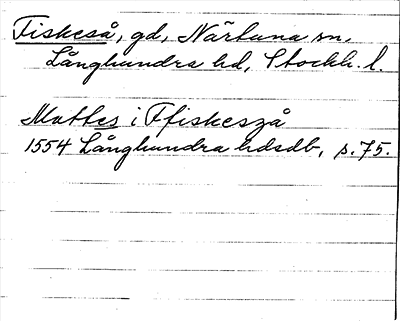 Fiskeså, gd, Närtuna sn,
Långhundra hd, Stockh. l.
Mattes i Ffiskeszå
1554 Långhundra hdsdb, p. 75.